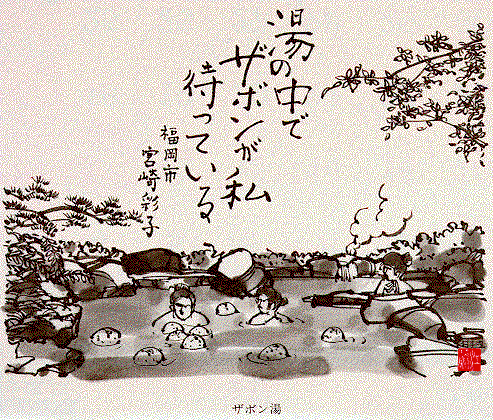 湯の中で
ザボンが私
待っている
福岡市
宮崎彩子
ザボン湯